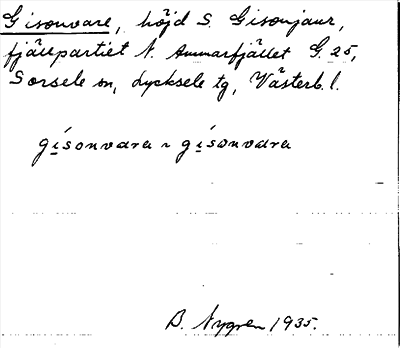 Gisonvare, höjd S Gisonjaur,
fjällpartiet N. Ammarfjället G. 25,
Sorsele sn, Lycksele tg, Västerb. l.
gísonvarα ~ gísαnvαrα
B. Nygren 1935.